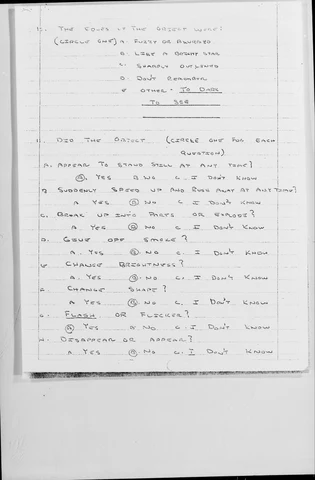 THE EDGES OF THE OBJECT WERE:
(CIRCLE ONE) A. FUZZY OR BLURRED
B. LIKE A BRIGHT STAR
C. SHARPLY OUTLINED
D. DON'T REMEMBER
E OTHER - TO DARK
TO SEE
DID THE OBJECT (CIRCLE ONE FOR EACH
QUESTION)
A. APPEAR TO STAND STILL AT ANY TIME?
A YES B NO C. I DON'T KNOW
B SUDDENLY SPEED UP AND RUSH AWAY AT ANY TIME?
A YES B NO C. I DON'T KNOW
C. BREAK UP INTO PARTS OR EXPLODE?
A. YES B. NO C. I DON'T KNOW
D. GIVE OFF SMOKE?
A. YES B. NO C. I DON'T KNOW
E CHANGE BRIGHTNESS?
A. YES B. NO C. I DON'T KNOW
CHANGE SHAPE?
A YES B NO C. I DON'T KNOW
G. FLASH OR FLICKER?
A YES B NO C. I DON'T KNOW
H. DISAPPEAR OR APPEAR?
A YES B. NO C. I DON'T KNOW